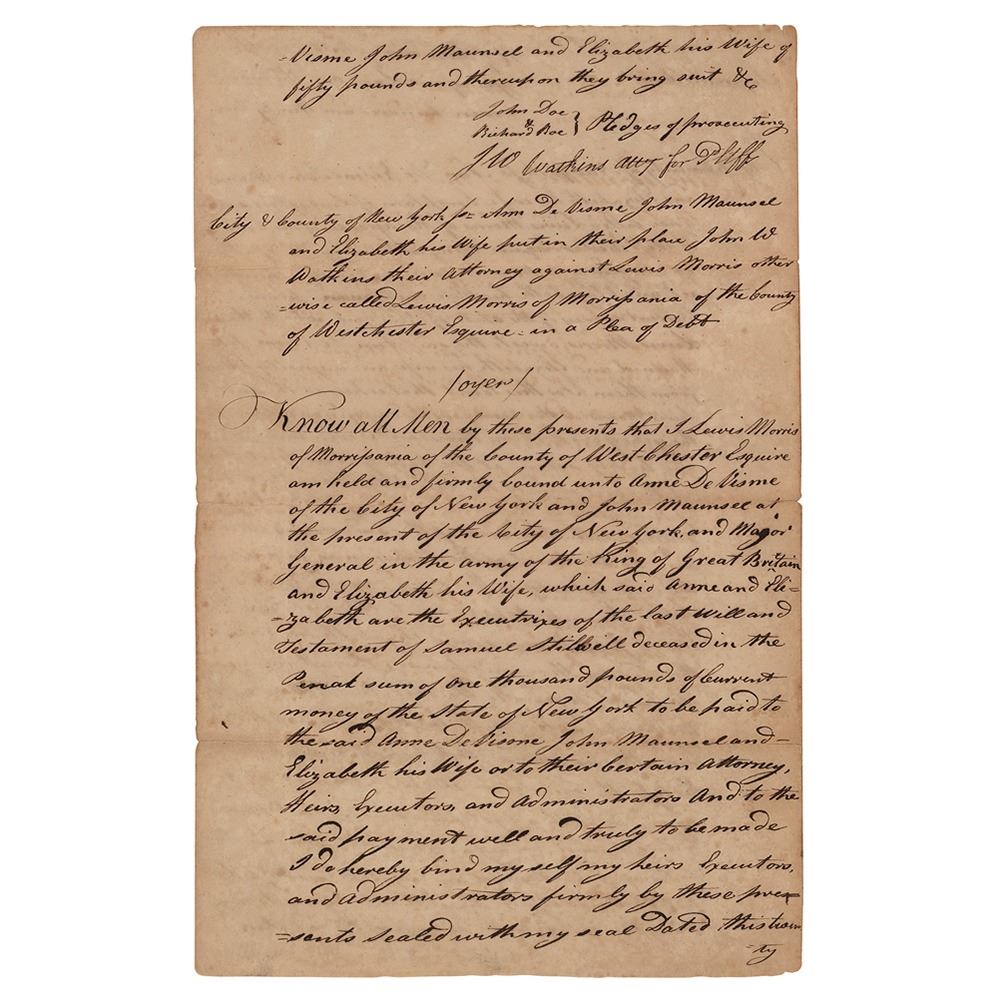 -Visme John Maunsel and Elizabeth his Wife of
fifty pounds and thereupon they bring suit &c
John Doe
& Richard Roe } Pledges of prosecuting
J W Watkins atty for Pltff
City & County of New York ss= Ann De Visme John Maunsel
and Elizabeth his Wife put in their place John W
Watkins their Attorney against Lewis Morris other
-wise called Lewis Morris of Morrisania of the County
of Westchester Esquire - in a Plea of Debt
/oyer/
Know all Men by these presents that I Lewis Morris
of Morrisania of the County of West Chester Esquire
am held and firmly bound unto Anne De Visme
of the City of New York and John Maunsel at
the present of the City of New York, and Major
General in the army of the King of Great Britain
and Elizabeth his Wife, which said Anne and Eli=
-zabeth are the Executrixes of the last Will and
Testament of Samuel Stillwill deceased in the
Penal sum of one thousand pounds of Current
money of the State of New York to be paid to
the said Anne De Visme John Maunsel and-
Elizabeth his Wife or to their Certain Attorney,
Heirs, Executors, and Administrators And to the
said payment well and truly to be made
I do hereby bind my self my heirs Executors,
and administrators firmly by these pre=
=sents sealed with my seal Dated this twen
-ty